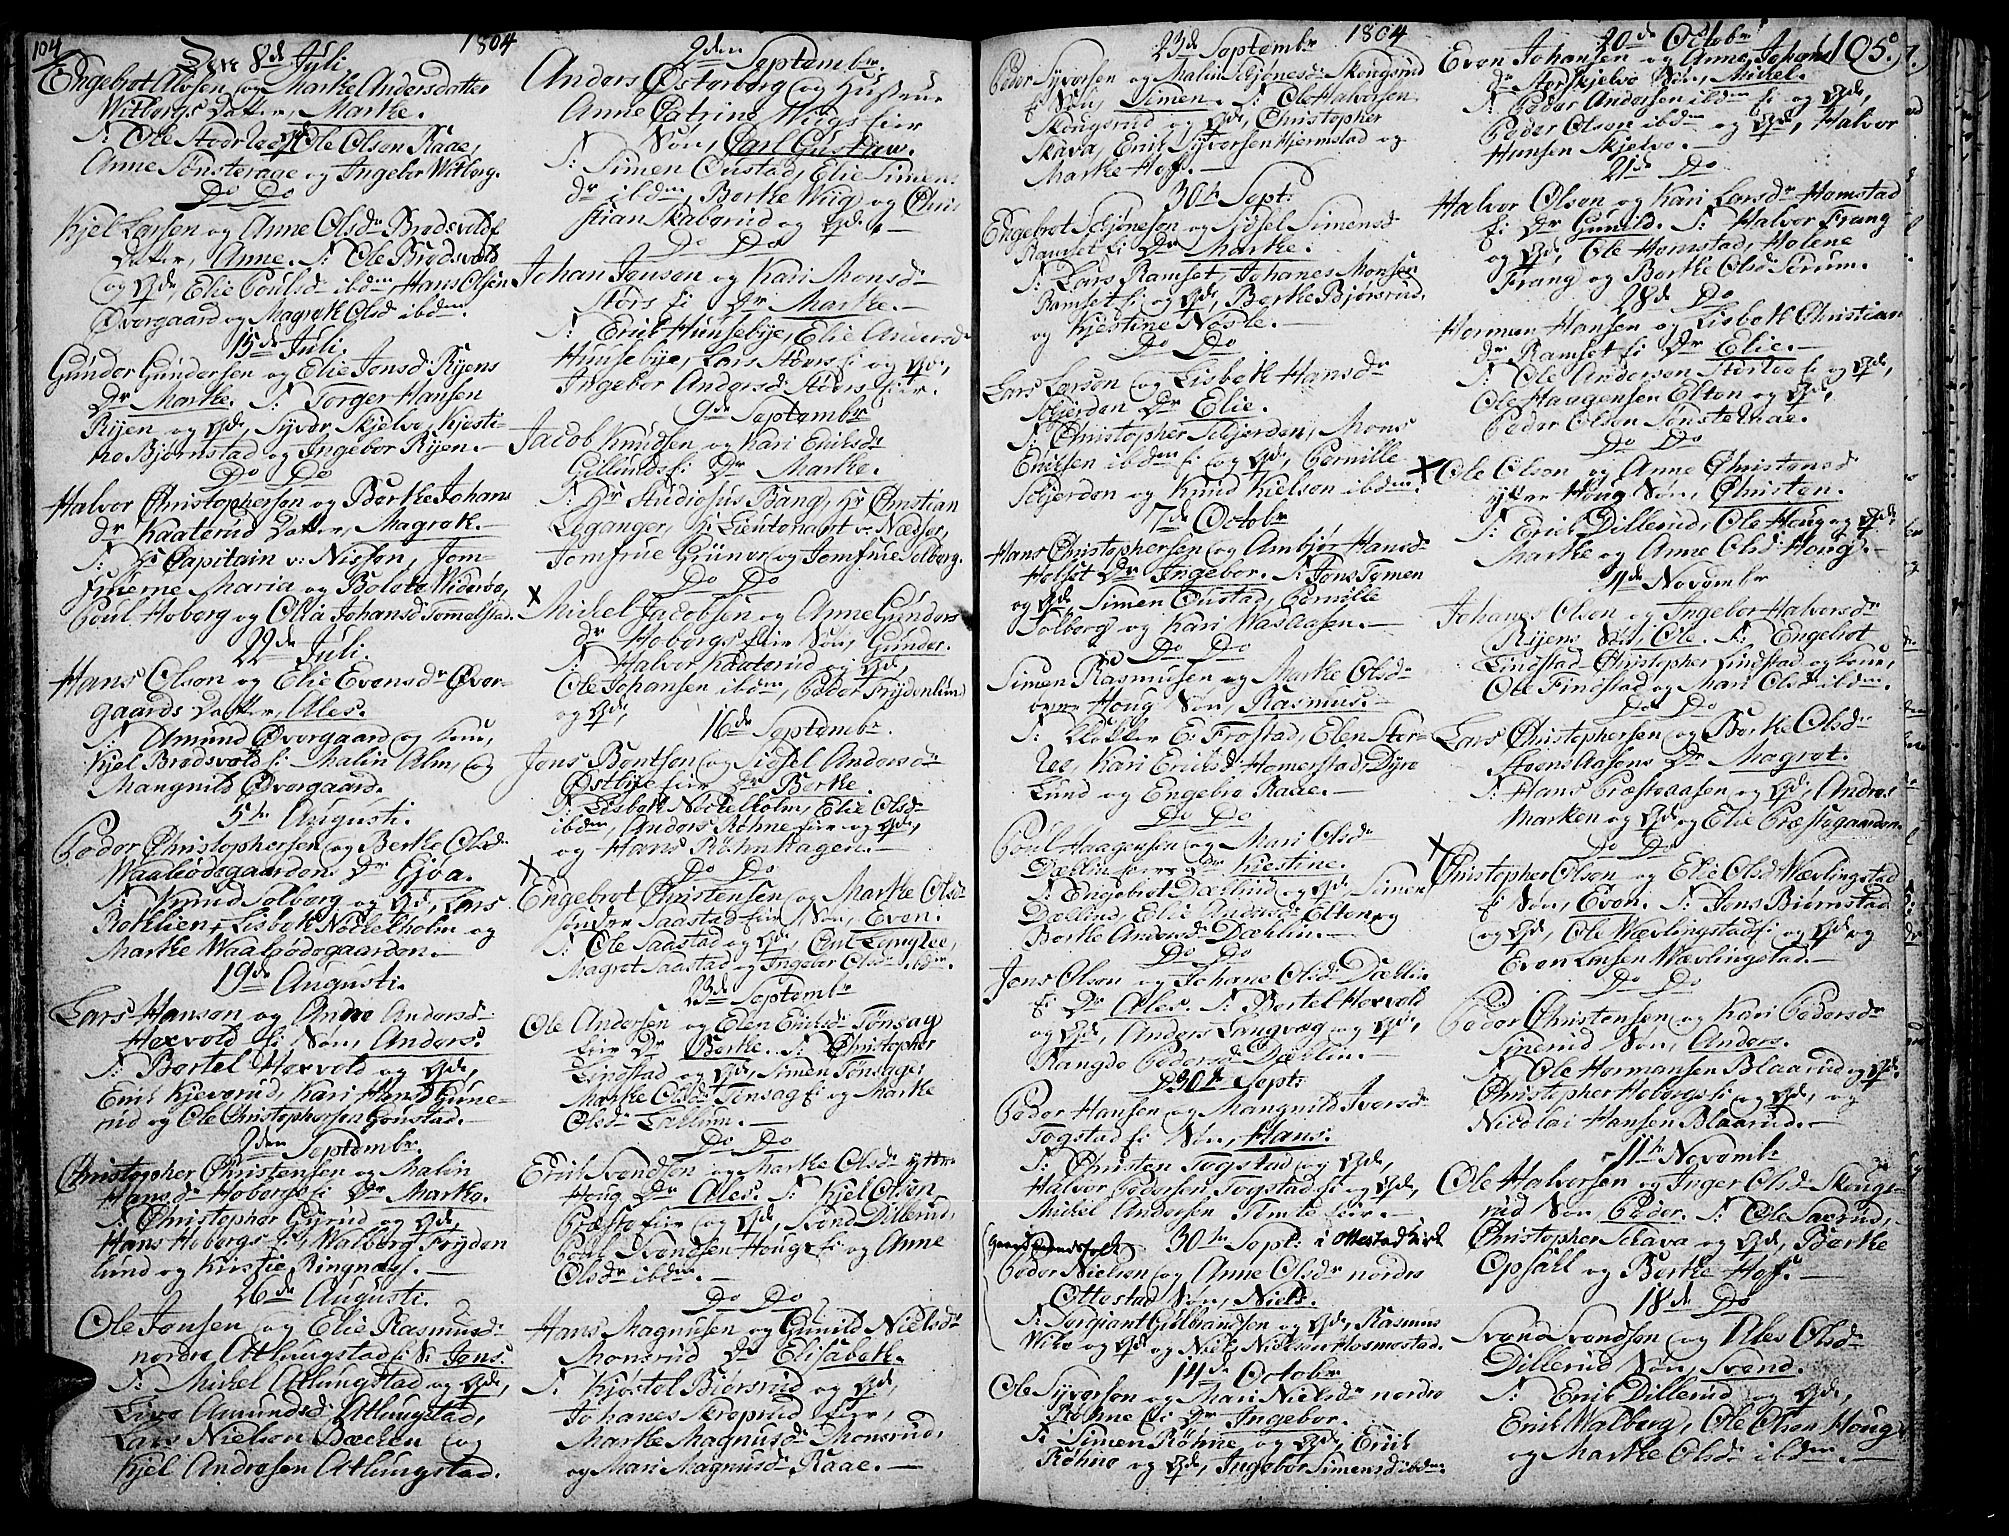 104
1804
Den 8de Juli
Engebret Olsen og Marthe Andersdatter
Wilbergs Datter, Marthe.
Anne Sønsterage og Ingebor Wilberg.
Do Do
Kjel Larsen og Anne Olsdr Brodsvold
Datter, Anne. T: Ole Brodsvold
og Qde, Elie Poulsdr ibdm Hans Olsen
Øvergaard og Magrete Olsd ibdm.
15de Juli.
Gunder Gundersen og Elie Jonsd. Ryens
Dr Marthe. T: Torger Hansen
Ryen og Qde, Syver Skjelve, Kjesti-
ne Bjørnstad og Ingebor Ryen.
Do Do
Halvor Christophersen og Berthe Johans
dr Kaaterud Datter, Magrete.
T: Hr Capitain v: Nissen, Jom-
fruerne Maria og Bolete Widerøe,
Poul Hoberg og Olia Johansd Tommelstad.
22de Juli.
Hans Olsen og Elie Evensdr Øver-
gaards Datter, Ales.
T: Amund Øvergaard og kone,
Kjel Brodsvold fi Malin Alm, og
Mangnild Øvergaard.
5te Augusti.
Peder Christophersen og Berthe Olsdr
Waalødegaarden Dr Gjøa.
T: Knud Solberg og Qde, Lars
Rotlien, Lisbeth Nøckelholm og
Marthe Waalødegaarden.
19de Augusti.
Lars Hansen og Anne Andersdr
Hexvold fi Søn, Anders.
T: Bertel Hexvold og Qde,
Erik Kjeverud, Kari Hansd Gune-
rud og Ole Christophersen Gonstad.
2den Septembr.
Christopher Christensen og Malin
Hansdr Hobergs fi Dr Marthe.
T: Christopher Gyrud og Qde,
Hans Hobergs fi, Walberg Fryden
lund og Kirstie Ringnæss.
26de Augusti.
Ole Jonsen og Elie Rasmusdr
nordre Atlungstad fi S: Jons.
T: Mikel Atlungstad og Qde,
Live Amundsdr Atlungstad,
Lars Nielsen Bæcken og
Kjel Andresen Atlungstad.
2den Septembr.
Anders Østerberg og Hustrue
Anne Catrine Wiigs eier
Søn, Carl Gustaw.
T: Simen Oustad, Elie Simens
dr ibdm, Berthe Wiig og Chri
stian Skaberud og Qde.
Do Do
Johan Jensen og Kari Monsdr
Størs fi Dr Marthe.
T: Erich Hunsebye, Elie Andersd
Hunsebye, Lars Størs fi og Qde,
Ingebor Andersdr Størs eier.
9de Septembr
Jacob Knudsen og Kari Eriksdr
Gillunds fi Dr Marthe.
T: Hr Studiosus Bang, Hr Christian
Leganger, Hr Lieutenant v: Nædser,
Jomfrue Grüner og Jomfrue Solberg.
Do Do
X Michel Jacobsen og Anne Gunders
dr Hobergs eier Søn, Gunder.
T: Halvor Kaaterud og Qde,
Ole Johansen ibdm, Peder Frydenlund
og Qde,
16de Septembr.
Jens Bentsen og Sidsel Andersdr
Østbye eier Dr Berthe.
T: Lisbeth Nøckelholm, Elie Olsdr
ibdm, Anders Røhne eier og Qde,
og Hans Røhn hagen.
Do Do
X Engebret Christensen og Marthe Olsd
søndre Saastad eier Søn, Even.
T: Ole Saastad og Qde, Ant Lunglee,
Magret Saastad og Ingebor Olsdr ibdm.
23de Septembr
Ole Andersen og Elen Eriksdr Tønsag
eier Dr Berthe. T: Christopher
Lindstad og Qde, Simen Tønsage,
Marthe Olsdr Tønsag fi og Marthe
Olsdr Gillium.
Do Do
Erik Svendsen og Marthe Olsdr yttre
Houg Dr Ales. T: Kjel Olsen
Præste eier og Qde, Svend Dillerud,
Poul Svendsen Hougs fi og Anne
Olsdr ibdm.
Do Do
Hans Magnusen og Gunild Nielsdr
Monsrud Dr Elisabeth.
T: Kjøstel Biørsrud og Qde,
Johanes Kroprud eier,
Marthe Magnusdr Monsrud,
og Mari Magnusdr Raae.
1804
23de Septembr
Peder Syversen og Malin Schjønesd Skougsrud
fi Søn, Simen. T: Ole Halvorsen
Skougsrud og Qde, Christopher
Skava, Erik Syversen Hjermstad og
Marthe Hoff.
30te Septr
Engebret Schjønesen og Sidsel Simensd
Ramset fi Dr Marthe.
T: Lars Ramset, Johanes Monsen
Ramset fi og Qde, Berthe Bjørsrud,
og Kjestine Nøsle.
Do Do
Lars Larsen og Lisbeth Hansdr
Schjerden Dr Elie.
T: Christopher Schjerden, Mons
Eriksen ibdm fi og Qde, Pernille
Schjerden og Knud Kielsen ibdm.
7de Octobr
Hans Christophersen og Ambjør Hansd
Holset Dr Ingebor. T: Jons Tomen
og Qde Simen Oustad, Pernille
Solberg og Kari Wasaasen.
Do Do
Simen Rasmusen og Marthe Olsdr
øvre Houg Søn, Rasmus.
T: Klokker E: Frostad, Elen Stor-
lee, Kari Eriksd Homerstad, Dyre
Lund og Engebro Raae.
Do Do
Poul Haagensen og Mari Olsdr
Dæhlin eiers Dr Kiestine.
T: Engebret Dæhlind og Qde Simen
Dæhlind, Elie Andersdr Elton og
Berthe Andersdr Dæhlin.
Do Do
Jens Olsen og Johane Olsdr Dæhlin
fi Dr Ales. T: Bertel Hexvold
og Qde, Anders Langvæg og Qde,
Rangdo Pedersdr Dæhlin.
30te Septr
Peder Hansen og Mangnild Iversdr
Togstad fi Søn, Hans.
T: Christen Togstad og Qde,
Halvor Pedersen Togstad fi og Qde,
Mickel Andersen Tomte eier.
30te Septr i Ottestad kirk
Peder Nielsen og Anne Olsdr nordre
Ottestad Søn, Niels.
T: Sergiant Gulbrandsen og Qde, Rasmus
Wibe og Qde og Niels Nielsen Hosmestad.
14de October
Ole Syversen og Mari Nielsdr nordre
Røhne fi Dr Ingebor.
T: Simen Røhne og Qde, Erik
Røhne og Qde, Ingebor Simensd ibdm.
20de Octobr
105.
Even Johansen og Anne Johans
dr Storskjelve Søn, Mickel.
T: Peder Andersen ibdm fi og Qde,
Peder Olsen ibdm og Qde, Halvor
Hansen Skjelve.
21de Do
Halvor Olsen og Kari Larsdr Homstad
fi Dr Gunild. T: Halvor Frang
og Qde, Ole Homstad, Helene
Frang og Berthe Olsdr Sørum.
28de Do
Herman Hansen og Lisbeth Christian
dr Ramset fi Dr Elie.
T: Ole Andersen Storlee fi og Qde,
Ole Haagensen Elton og Qde,
Peder Olsen Sønsteraae.
Do Do
X Ole Olsen og Anne Christensd
ytter Houg Søn, Christen.
T: Erik Dillerud, Ole Houg og Qde,
Marthe og Anne Olsd Houg.
4de Novembr
Johanes Olsen og Ingebor Halvorsdr
Ryens Søn, Ole. T: Engebret
Lindstad Christopher Lindstad og kone,
Ole Finstad og Mari Olsdr ibdm.
Do Do
Lars Christophersen og Berthe Olsdr
Steensaasens Dr Magret.
T: Hans Præsteaasen og Qde, Andres
Marken og Qde og Elie Præstegaarden.
Do Do
X Christopher Olsen og Elie Olsd Wævlingstad
fi Søn, Even. T: Jens Biørnstad
og Qde, Ole Wævlingstad fi og Qde og
Even Larsen Wævlingstad.
Do Do
Peder Christensen og Kari Pedersdr
Sinerud Søn, Anders.
T: Ole Hermansen Blaarud og Qde.
Christopher Hobergs fi og Qde, og
Nicolai Hansen Blaarud.
11te Novembr
Ole Halvorsen og Inger Olsdr Skougs-
rud Søn Peder. T: Ole Saxrud,
Christopher Schava og Qde, Berthe
Opsåll og Berthe Hoff.
18de Do
Svend Svendsen og Ales Olsdr
Dillerud Søn, Svend.
T: Erik Dillerud og Qde,
Erik Walberg, Ole Olsen Houg
og Marthe Olsdr ibdm.